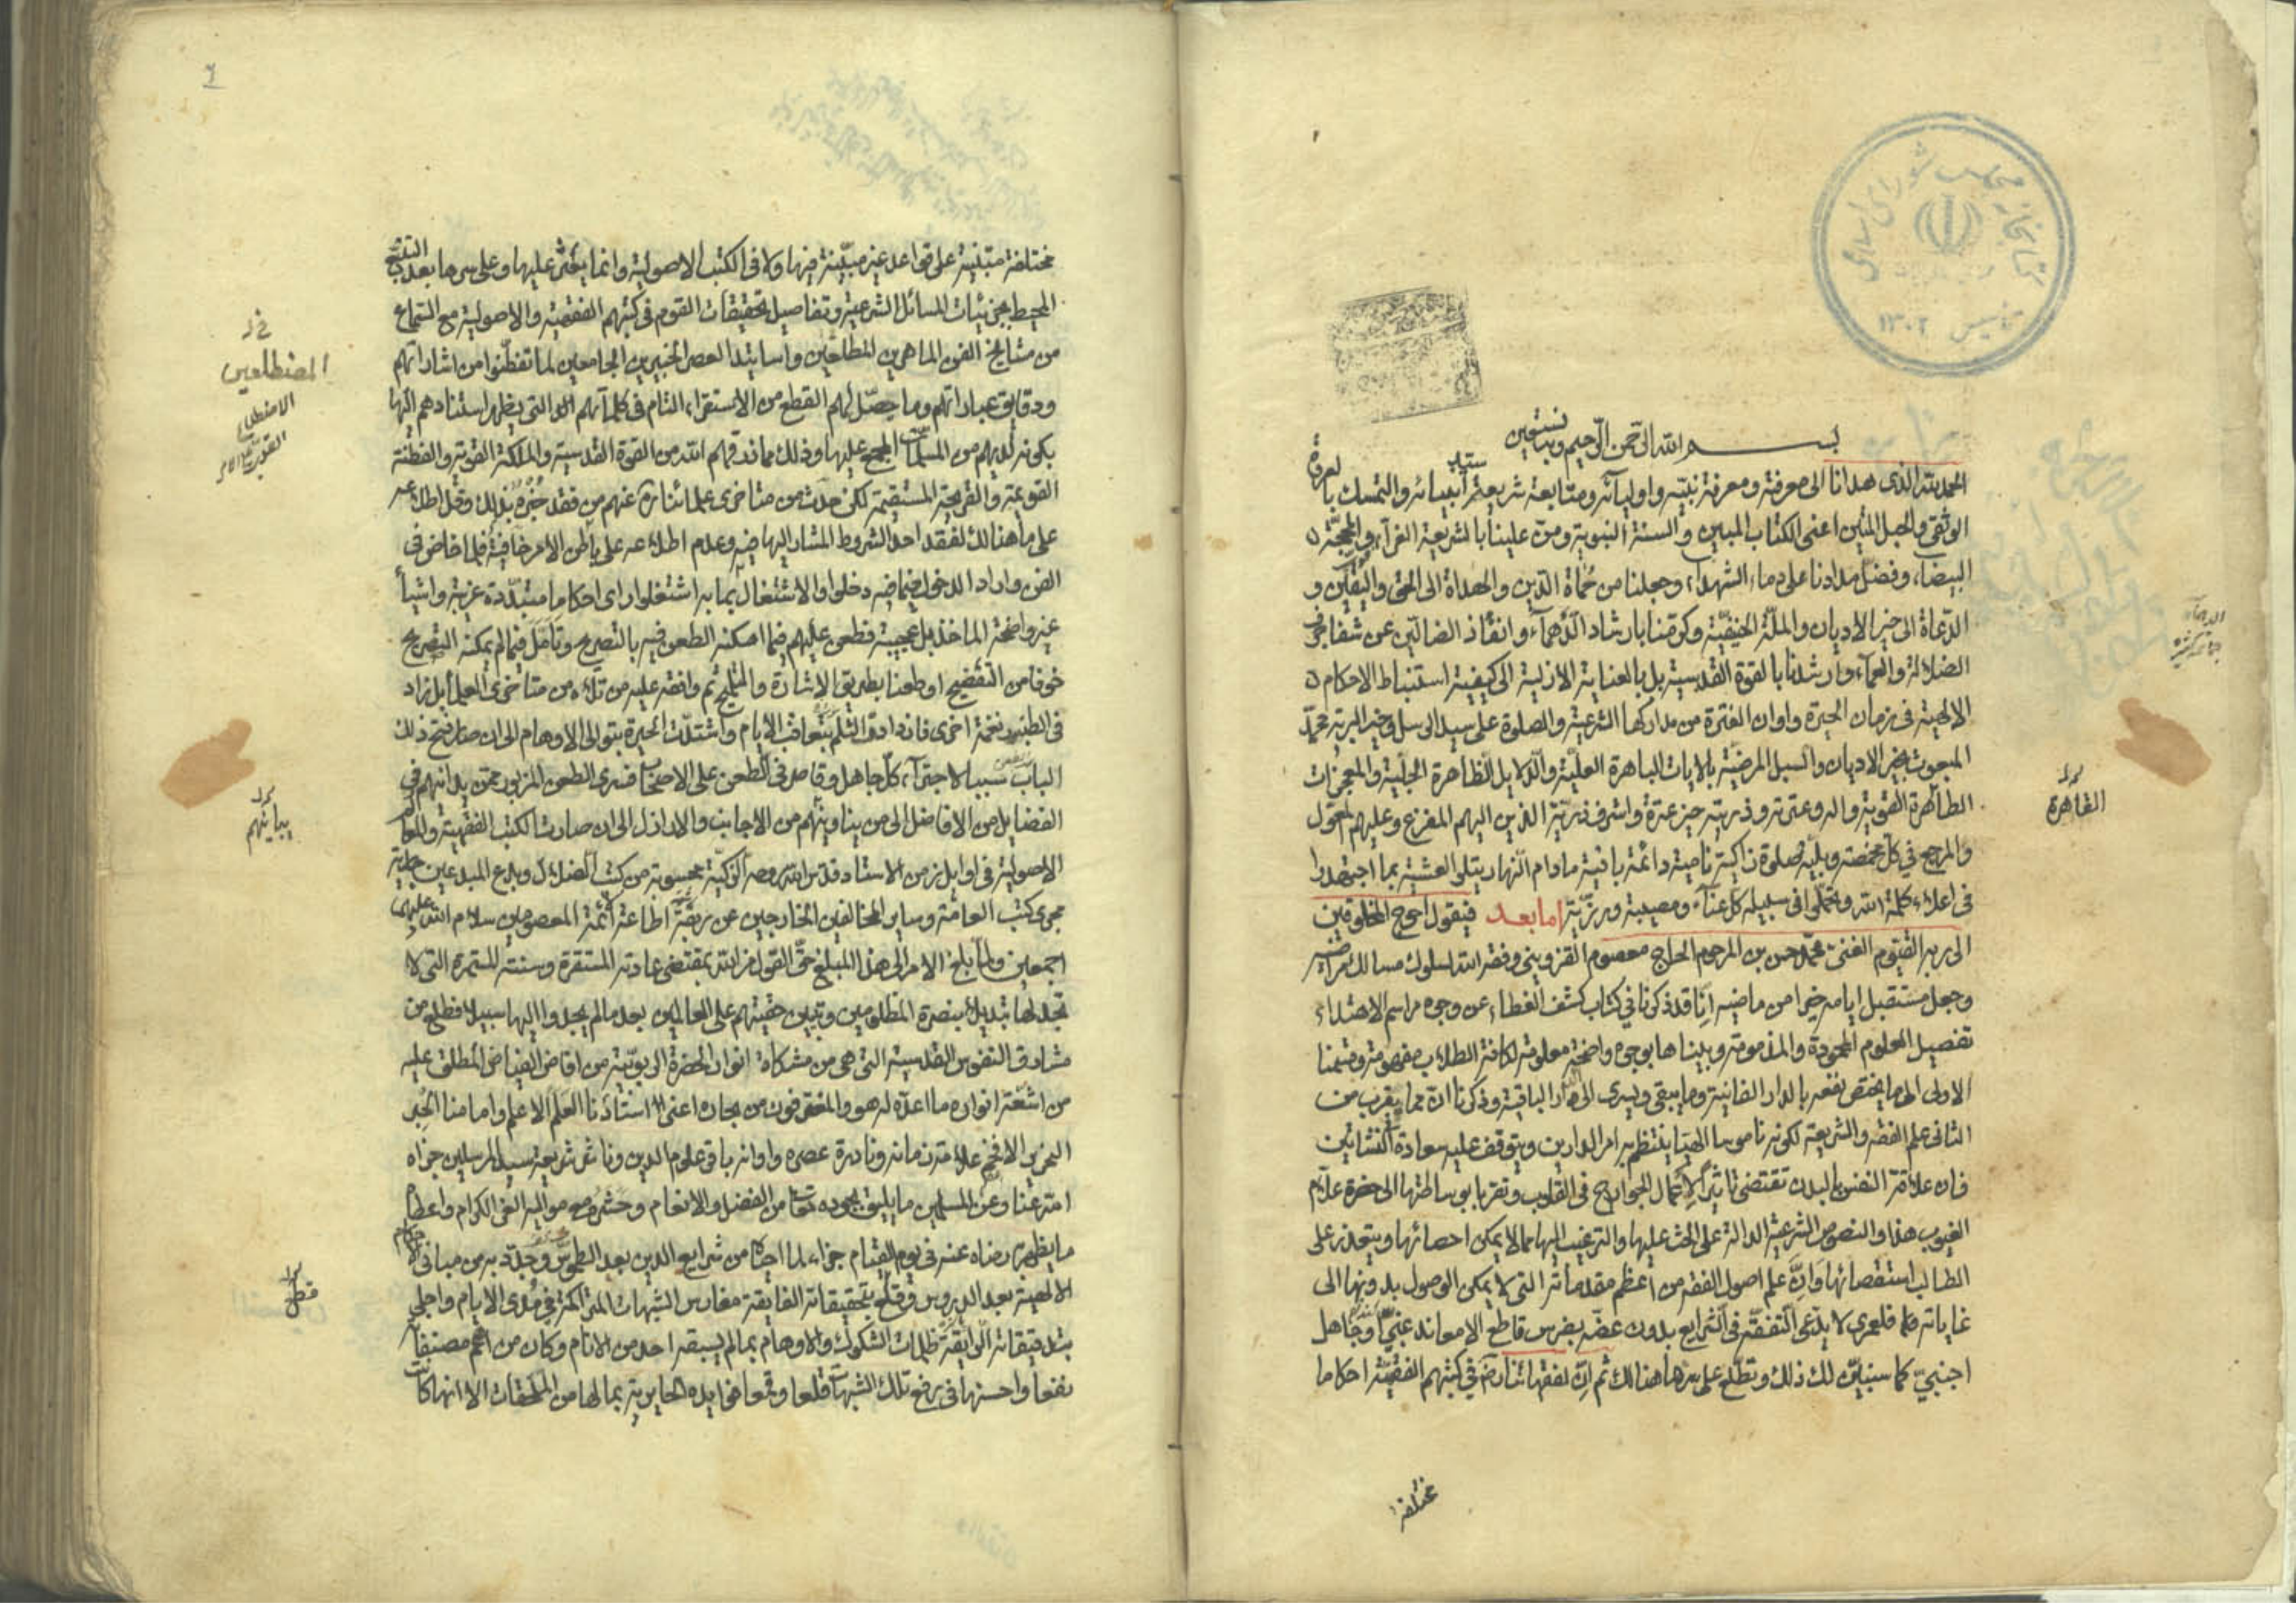 كتابخانه مجلس شوراى اسلامى
تأسيس ١٣٠٢
بسم الله الرحمن الرحيم وبه نستعين
الحمد لله الذى هدانا الى معرفته ومعرفة نبيّه واوليآئه ومتابعة شريعة سيّد أنبيائه والتمسك بالعروة
الوثقى والحبل المتين اعنى الكتاب المبين والسنة النبوية ومنّ علينا بالشريعة الغرآء والمحجّة
البيضاء وفضّل مدادنا على دماء الشهدآء وجعلنا من حُماة الدّين والهداة الى الحق واليقين و
الدّعاة الى خير الاديان والملّة الحنيفيّة وكرّمنا بارشاد الدّهمآء وانقاذ الضالّين عن شفا جرف
الضلالة والعمآء وارشدنا بالقوة القدسية بل بالعناية الازلية الى كيفية استنباط الاحكام
الالهية فى زمان الحيرة واوان الفترة من مداركها الشرعية والصلوة على سيد الرسل وخير البرية محمّد
المبعوث بخير الاديان والسبل المرضية بالايات الباهرة العليّة والدّلايل الظاهرة الجليّة والمعجزات
الطاهرة القوية واله وعترته وذريته خير عترة واشرف ذريّة الذين اليهم المفزع وعليهم المعوّل
والمرجع فى كل مخمصة وبليّة صلوة زاكية نامية دائمة باقية مادام النّهار يتلى العشية بما اجتهدوا
فى اعلاء كلمة الله وتحمّلوا فى سبيله كل عنآء ومصيبة ورزيّة امابعد فيقول احوج المخلوقين
الى ربه القيّوم الغنىّ محمّد حسن بن المرحوم الحاج معصوم القزوينى وفقه الله لسلوك مسالك مراضيه
وجعل مستقبل ايامه خيرا من ماضيه انّا قد ذكرنا فى كتاب كشف الغطاء عن وجوه مراسم الاهتداء
تفصيل العلوم المحمودة والمذمومة وبيناها بوجوه واضحة معلومة لكافة الطلاب مفهومة وقسمنا
الاولى الى ما يختص نفعه بالدار الفانية وما يبقى ويسرى الى الدار الباقية وذكرنا انّ مما يقرب من
الثانى علم الفقه والشريعة لكونه ناموسا الهيّا ينتظم به امر الدارين ويتوقف عليه سعادة النشاتين
فان علاقة النفس بالبدن تقتضى تاثير الاعمال الجوارح فى القلوب وتقربا بوساطتها الى حضرة علاّم
الغيوب هذا والنصوص الشرعية الدالة على الحث عليها والترغيب اليها مما لا يمكن احصائها ويتعذر على
الطالب استقصائها وَانّ علم اصول الفقه من اعظم مقدماته التى لا يمكن الوصول بدونها الى
غاياته فلعمرى لا يدّعى التفقّه فى الشرايع بدون عضّه بضرس قاطع الا معاند غبىّ او جاهل
اجنبىّ كما سنبيّن لك ذلك وتطّلع على سرّها هنالك ثم انّ لفقهائنا رض فى كتبهم الفقهيّة احكاما
مختلفة
الدهمآء
جماعة كثيرة
القاهرة
مختلفة مبتنية على قواعد غير مبيّنة فيها ولا فى الكتب الاصولية وانما يعثر عليها وعلى سرها بعد التتبّع
المحيط بجزئيات المسائل الشرعية وتفاصيل تحقيقات القوم فى كتبهم الفقهية والاصولية مع السّماع
من مشايخ الفن الماهرين المطلعين واساتيد العصر الخبيرين الجامعين لما تفطّنوا من اشاراتهم
ودقايق عباراتهم وما حصّل لهم القطع من الاستقراء التام فى كلماتهم التى يظهر استنادهم اليها
بكونه لديهم من المسلمات المجمع عليها وذلك مما قد رزقهم الله من القوة القدسية والملكة القوية والفطنة
القويمة والقريحة المستقيمة لكن حدث من متاخرى علمائنا عنهم من فقد خُبْره بذلك وقلّ اطلاعه
على ما هنالك لفقد احد الشروط المشار اليها فيه وعدم اطلاعه على باطن الامر وخافيه فلما خاض فى
الفن واراد الدخول فيما فيه دخلوا والاشتغال بما به اشتغلوا راى احكاما متبدّدة غريبة واشيآء
غير واضحة الماخذ بل عجيبة فطعن عليهم فيما امكنه الطعن فيه بالتصريح وتامّل فيما لم يمكنه التصريح
خوفا من التفضيح او طعنا بطريق الاشارة والتلميح ثم وافقه عليه من تلاه من متاخرى العلماء بل زاد
فى الطنبور نغمة اخرى فازدادت الثلم بتعاقب الايام واشتدّت الحيرة بتوالى الاوهام الى ان صار فتح ذلك
الباب سببا لاجترآء كل جاهل وقاصر فى الطعن على الاصحاب فسرى الطعن المزبور ممن يدانيهم فى
الفضايل من الافاضل الى من يناوئهم من الاجانب والاراذل الى ان صارت الكتب الفقهية والمعالم
الاصولية فى اوايل زمن الاستاد قدس الله روحه الزكيّة محسوبة من كتب الضلال وبدع المبدعين جارية
مجرى كتب العامّة وساير المخالفين الخارجين عن ربقة اطاعة ائمة المعصومين سلام الله عليهم
اجمعين ولمّا بلغ الامر الى هذا المبلغ حقّ القول من الله بمقتضى عادته المستقرة وسنته المستمرة التى لا
تجد لها تبديلا بنصرة المظلومين وتبيين حقيّتهم على العالمين بعد ما لم يجدوا اليها سبيلا فطلع من
مشارق النفوس القدسية التى هى من مشكاة انوار الحضرة الربوبيّة من افاض الفياض المطلق عليه
من اشعّة انواره ما اعدّه له هو والمغترفون من بحاره اعنى استاذنا العَلَم الاعلم وامامنا الحِبر
النحرير الافخم علامة زمانه ونادرة عصره واوانه باقر علوم الدين وناشر شريعة سيد المرسلين جزاه
الله عنّا وعن المسلمين ما يليق بجوده من الفضل والانعام وحشره مع مواليه الغر الكرام واعطاه
ما يظهر به رضاه عنه فى يوم القيام جزاء لما احيا من شرايع الدين بعد الطموس وجدّد به من مبانى الاحكام
الالهية بعد الدروس وقلع بتحقيقاته الفايقة مغارس الشبهات المتراكمة فى مُدى الايام واجلى
بتدقيقاته الرّايقة ظلمات الشكوك والاوهام بما لم يسبقه احد من الانام وكان من اتمّ مصنفاته
نفعا واحسنها فى رفع تلك الشبهات قلعا وقمعا فوايده الحايرية بما لها من الملحقات الا انها كانت
المضطلعين
الاضطلاع
القاهرة
قطل